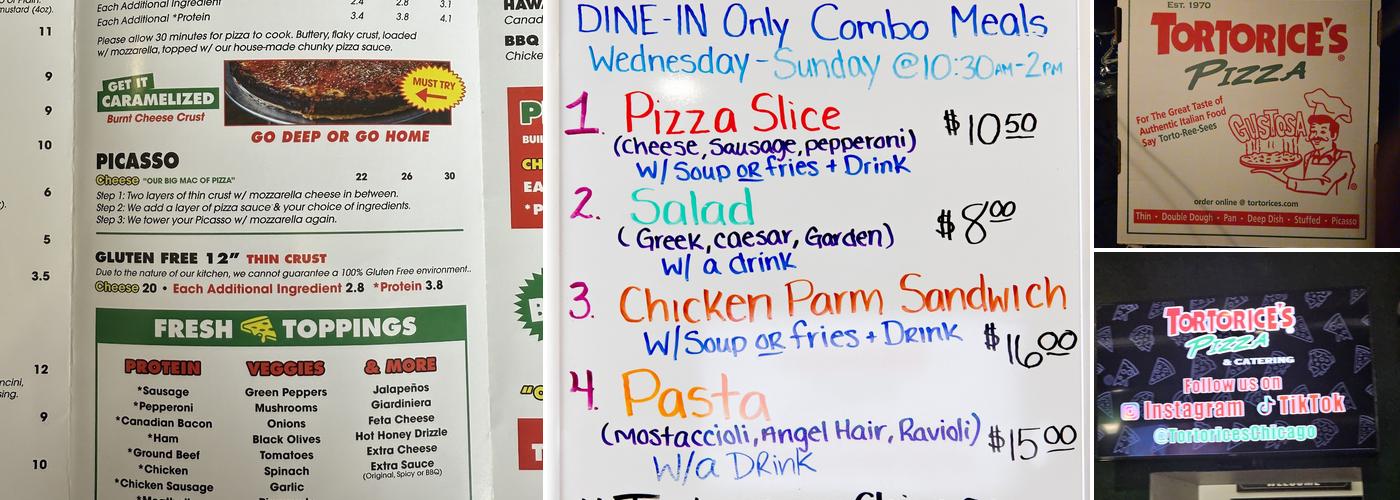 mustard (4oz).
11
9
9
10
6
5
3.5
12
9
10
Each Additional Ingredient 2.4 2.8 3.1
Each Additional *Protein 3.4 3.8 4.1
Please allow 30 minutes for pizza to cook. Buttery, flaky crust, loaded
w/ mozzarella, topped w/ our house-made chunky pizza sauce.
GET IT
CARAMELIZED
Burnt Cheese Crust
MUST TRY
GO DEEP OR GO HOME
PICASSO
Cheese "OUR BIG MAC OF PIZZA" 22 26 30
Step 1: Two layers of thin crust w/ mozzarella cheese in between.
Step 2: We add a layer of pizza sauce & your choice of ingredients.
Step 3: We tower your Picasso w/ mozzarella again.
GLUTEN FREE 12" THIN CRUST
Due to the nature of our kitchen, we cannot guarantee a 100% Gluten Free environment..
Cheese 20 • Each Additional Ingredient 2.8 *Protein 3.8
FRESH TOPPINGS
PROTEIN
*Sausage
*Pepperoni
*Canadian Bacon
*Ham
*Ground Beef
*Chicken
*Chicken Sausage
VEGGIES
Green Peppers
Mushrooms
Onions
Black Olives
Tomatoes
Spinach
Garlic
& MORE
Jalapeños
Giardiniera
Feta Cheese
Hot Honey Drizzle
Extra Cheese
Extra Sauce
(Original, Spicy or BBQ)
BBQ
DINE-IN Only Combo Meals
Wednesday - Sunday @10:30AM-2PM
1. Pizza Slice $10.50
(Cheese, Sausage, pepperoni)
W/ Soup OR fries + Drink
2. Salad $8.00
(Greek, caesar, Garden)
W/ a drink
3. Chicken Parm Sandwich
W/ Soup OR fries + Drink $16.00
4. Pasta
(Mostaccioli, Angel Hair, Ravioli) $15.00
W/a DRink
EST. 1970
TORTORICE'S
PIZZA
For The Great Taste of
Authentic Italian Food
Say Torto-Ree-Sees
GUSTOSA
order online @ tortorices.com
Thin • Double Dough • Pan • Deep Dish • Stuffed • Picasso
TORTORICE'S
PIZZA
& CATERING
Follow us on
Instagram TikTok
@TortoricesChicago
WELCOME